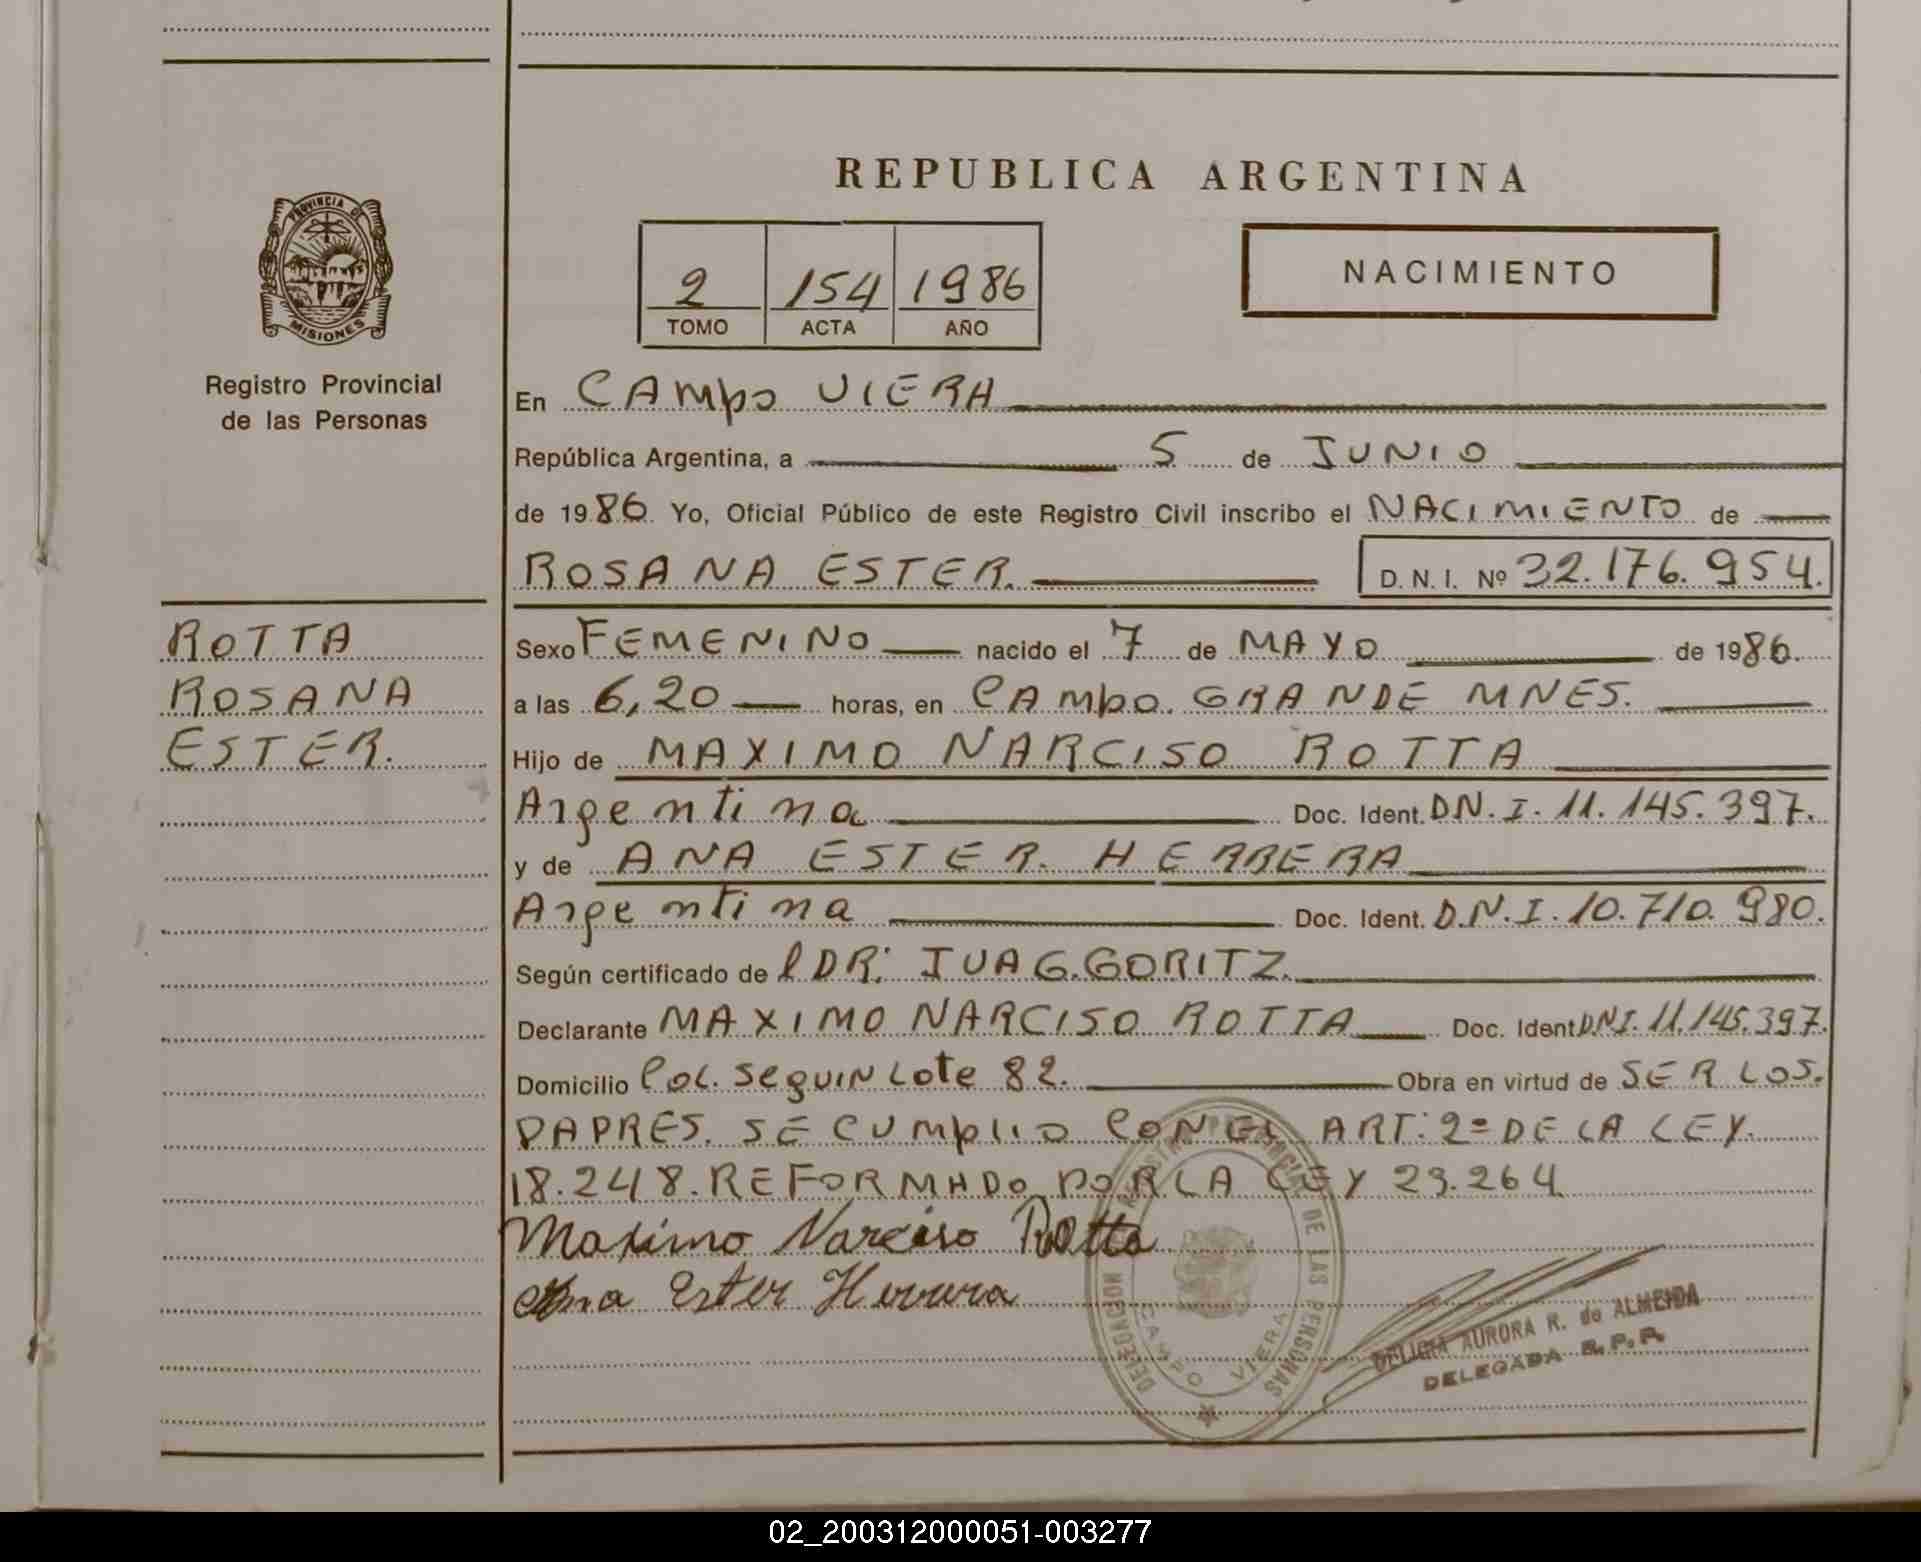 PROVINCIA DE
MISIONES
Registro Provincial
de las Personas
ROTTA
ROSANA
ESTER.
REPUBLICA ARGENTINA
2 154 1986
TOMO ACTA AÑO
NACIMIENTO
En CAMPO VIERA
República Argentina, a 5 de JUNIO
de 1986 Yo, Oficial Público de este Registro Civil inscribo el NACIMIENTO de
ROSANA ESTER. D. N. I. Nº 32.176.954.
Sexo FEMENINO nacido el 7 de MAYO de 1986.
a las 6,20 horas, en CAMPO GRANDE MNES.
Hijo de MAXIMO NARCISO ROTTA
Argentina Doc. Ident. D.N.I. 11.145.397.
y de ANA ESTER. HERRERA
Argentina Doc. Ident. D.N.I. 10.710.980.
Según certificado de l DR: JUA G. GORITZ.
Declarante MAXIMO NARCISO ROTTA Doc. Ident D.N.I. 11.145.397.
Domicilio Col. SEGUIN Lote 82. Obra en virtud de SER LOS.
PAPRES. SE CUMPLIO CON EL ART: 2º DE LA LEY.
18.248. REFORMADO POR LA LEY 23.264
Maximo Narciso Rotta
Ana Ester Herrera
DELEGACION REGISTRO PROVINCIAL DE LAS PERSONAS
CAMPO VIERA
DELICIA AURORA R. de ALMEIDA
DELEGADA R. P. P.
02_200312000051-003277